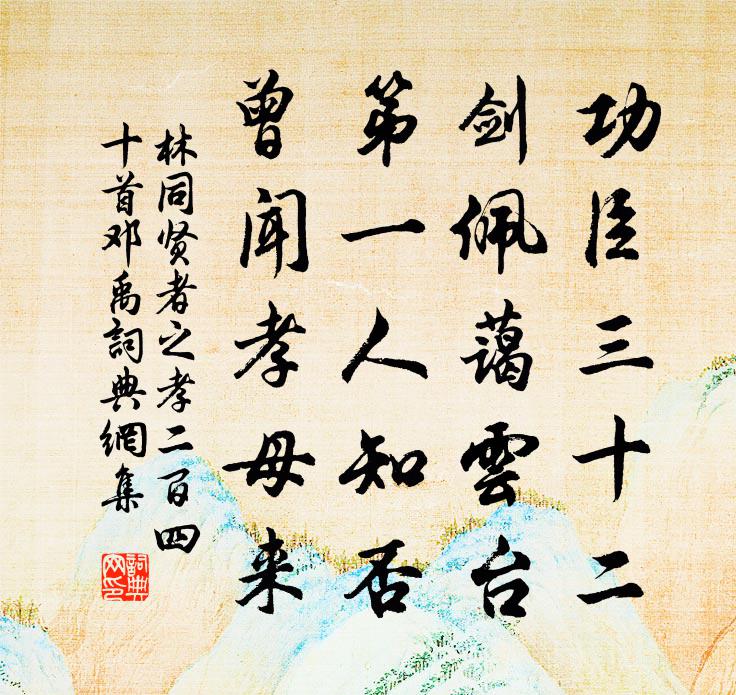 功臣三十二
剑佩蔼雲台
第一人知否
曾闻孝母来
林同贤者之孝二百四
十首邓禹詞典網集
詞典